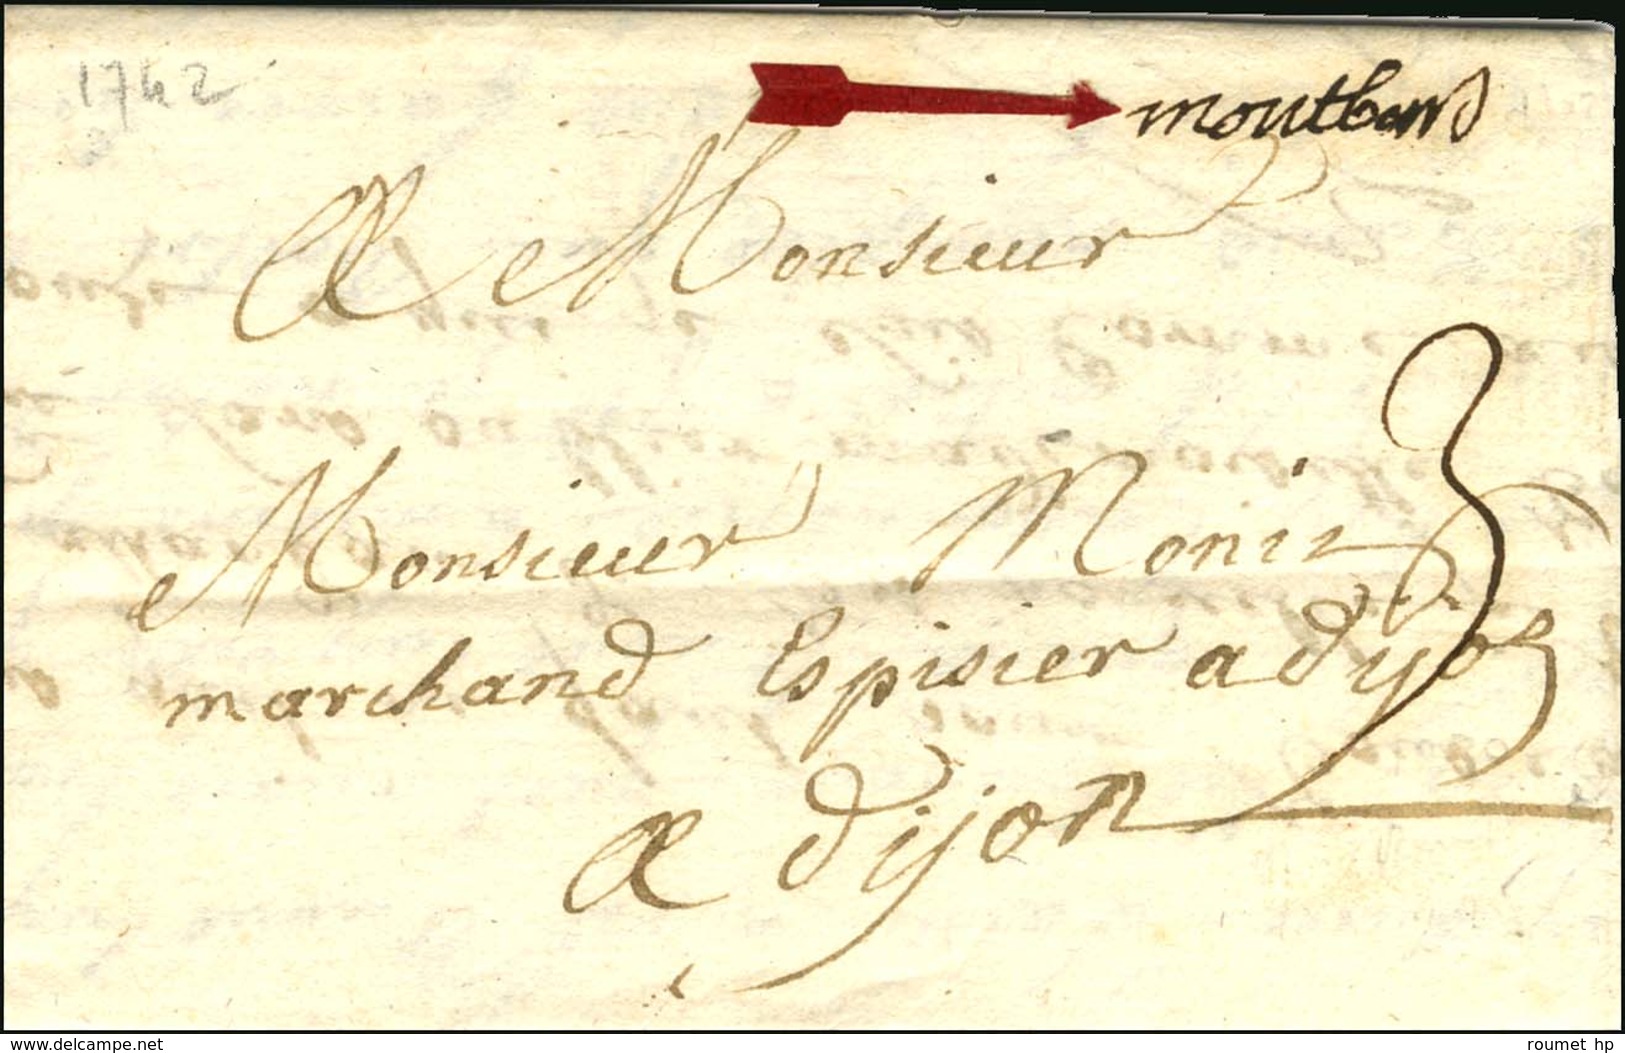 1742
montbard
A Monsieur
3
Monsieur Monin
marchand Espisier a dyon
A dijon
www.delcampe.net
roumet hp